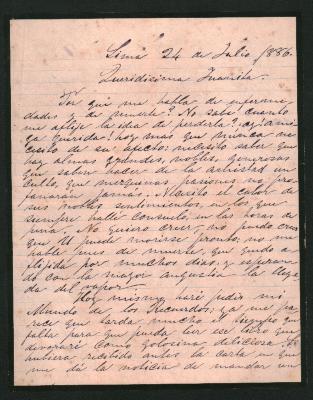 Lima 24 de Julio /886.
Queridisima Juanita.
Por qué me habla de enferme
dades y de muerte? No sabe cuanto
me aflije la idea de perderla?
querida! hoy mas que nunca ne
cesito de su afecto; necesito saber que
hay almas grandes, nobles, generosas
que saben hacer de la amistad un
culto, que mezquinas pasiones no pro
fanarán jamás. Necesito el calor de
sus nobles sentimientos, en los que
siempre hallé consuelo en las horas de
pena. No quiero creer, no puedo creer
que U puede morirse pronto, no me
hable mas de muerte, que quedo a
flijida por muchos dias y esperan
do con la mayor angustia la llega
da del vapor.
Hoy mismo haré pedir mi
Mundo de los Recuerdos, ya me pa
rece que tarda mucho el tiempo que
falta para que pueda leer ese libro que
devoraré como golosina deliciosa. Si
hubiera recibido antes la carta en que
me dá la noticia de mandar un